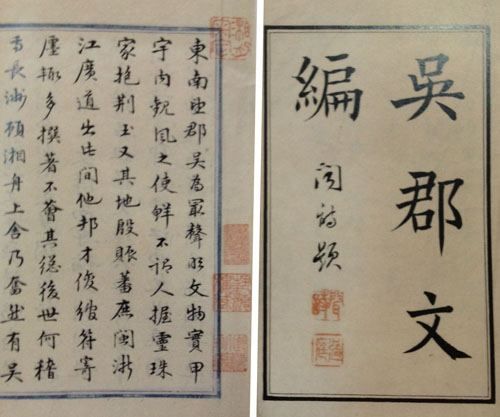 吳郡文
編
題
東南望郡吳為冣聲明文物實甲
宇內覘風之使鮮不謂人握靈珠
家抱荊玉又其地殷賑蕃庶閩浙
江廣道出此間他邦才俊綰符寄
廛輒多撰著不薈其總後世何稽
長洲顧湘舟上舍乃奮然有吳